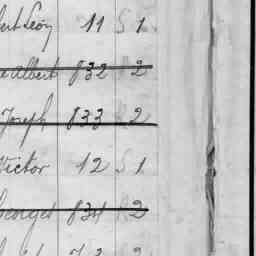 bert Léon 11 S 1
e Albert 832 2
Joseph 833 2
Victor 12 S 1
Georges 834 2